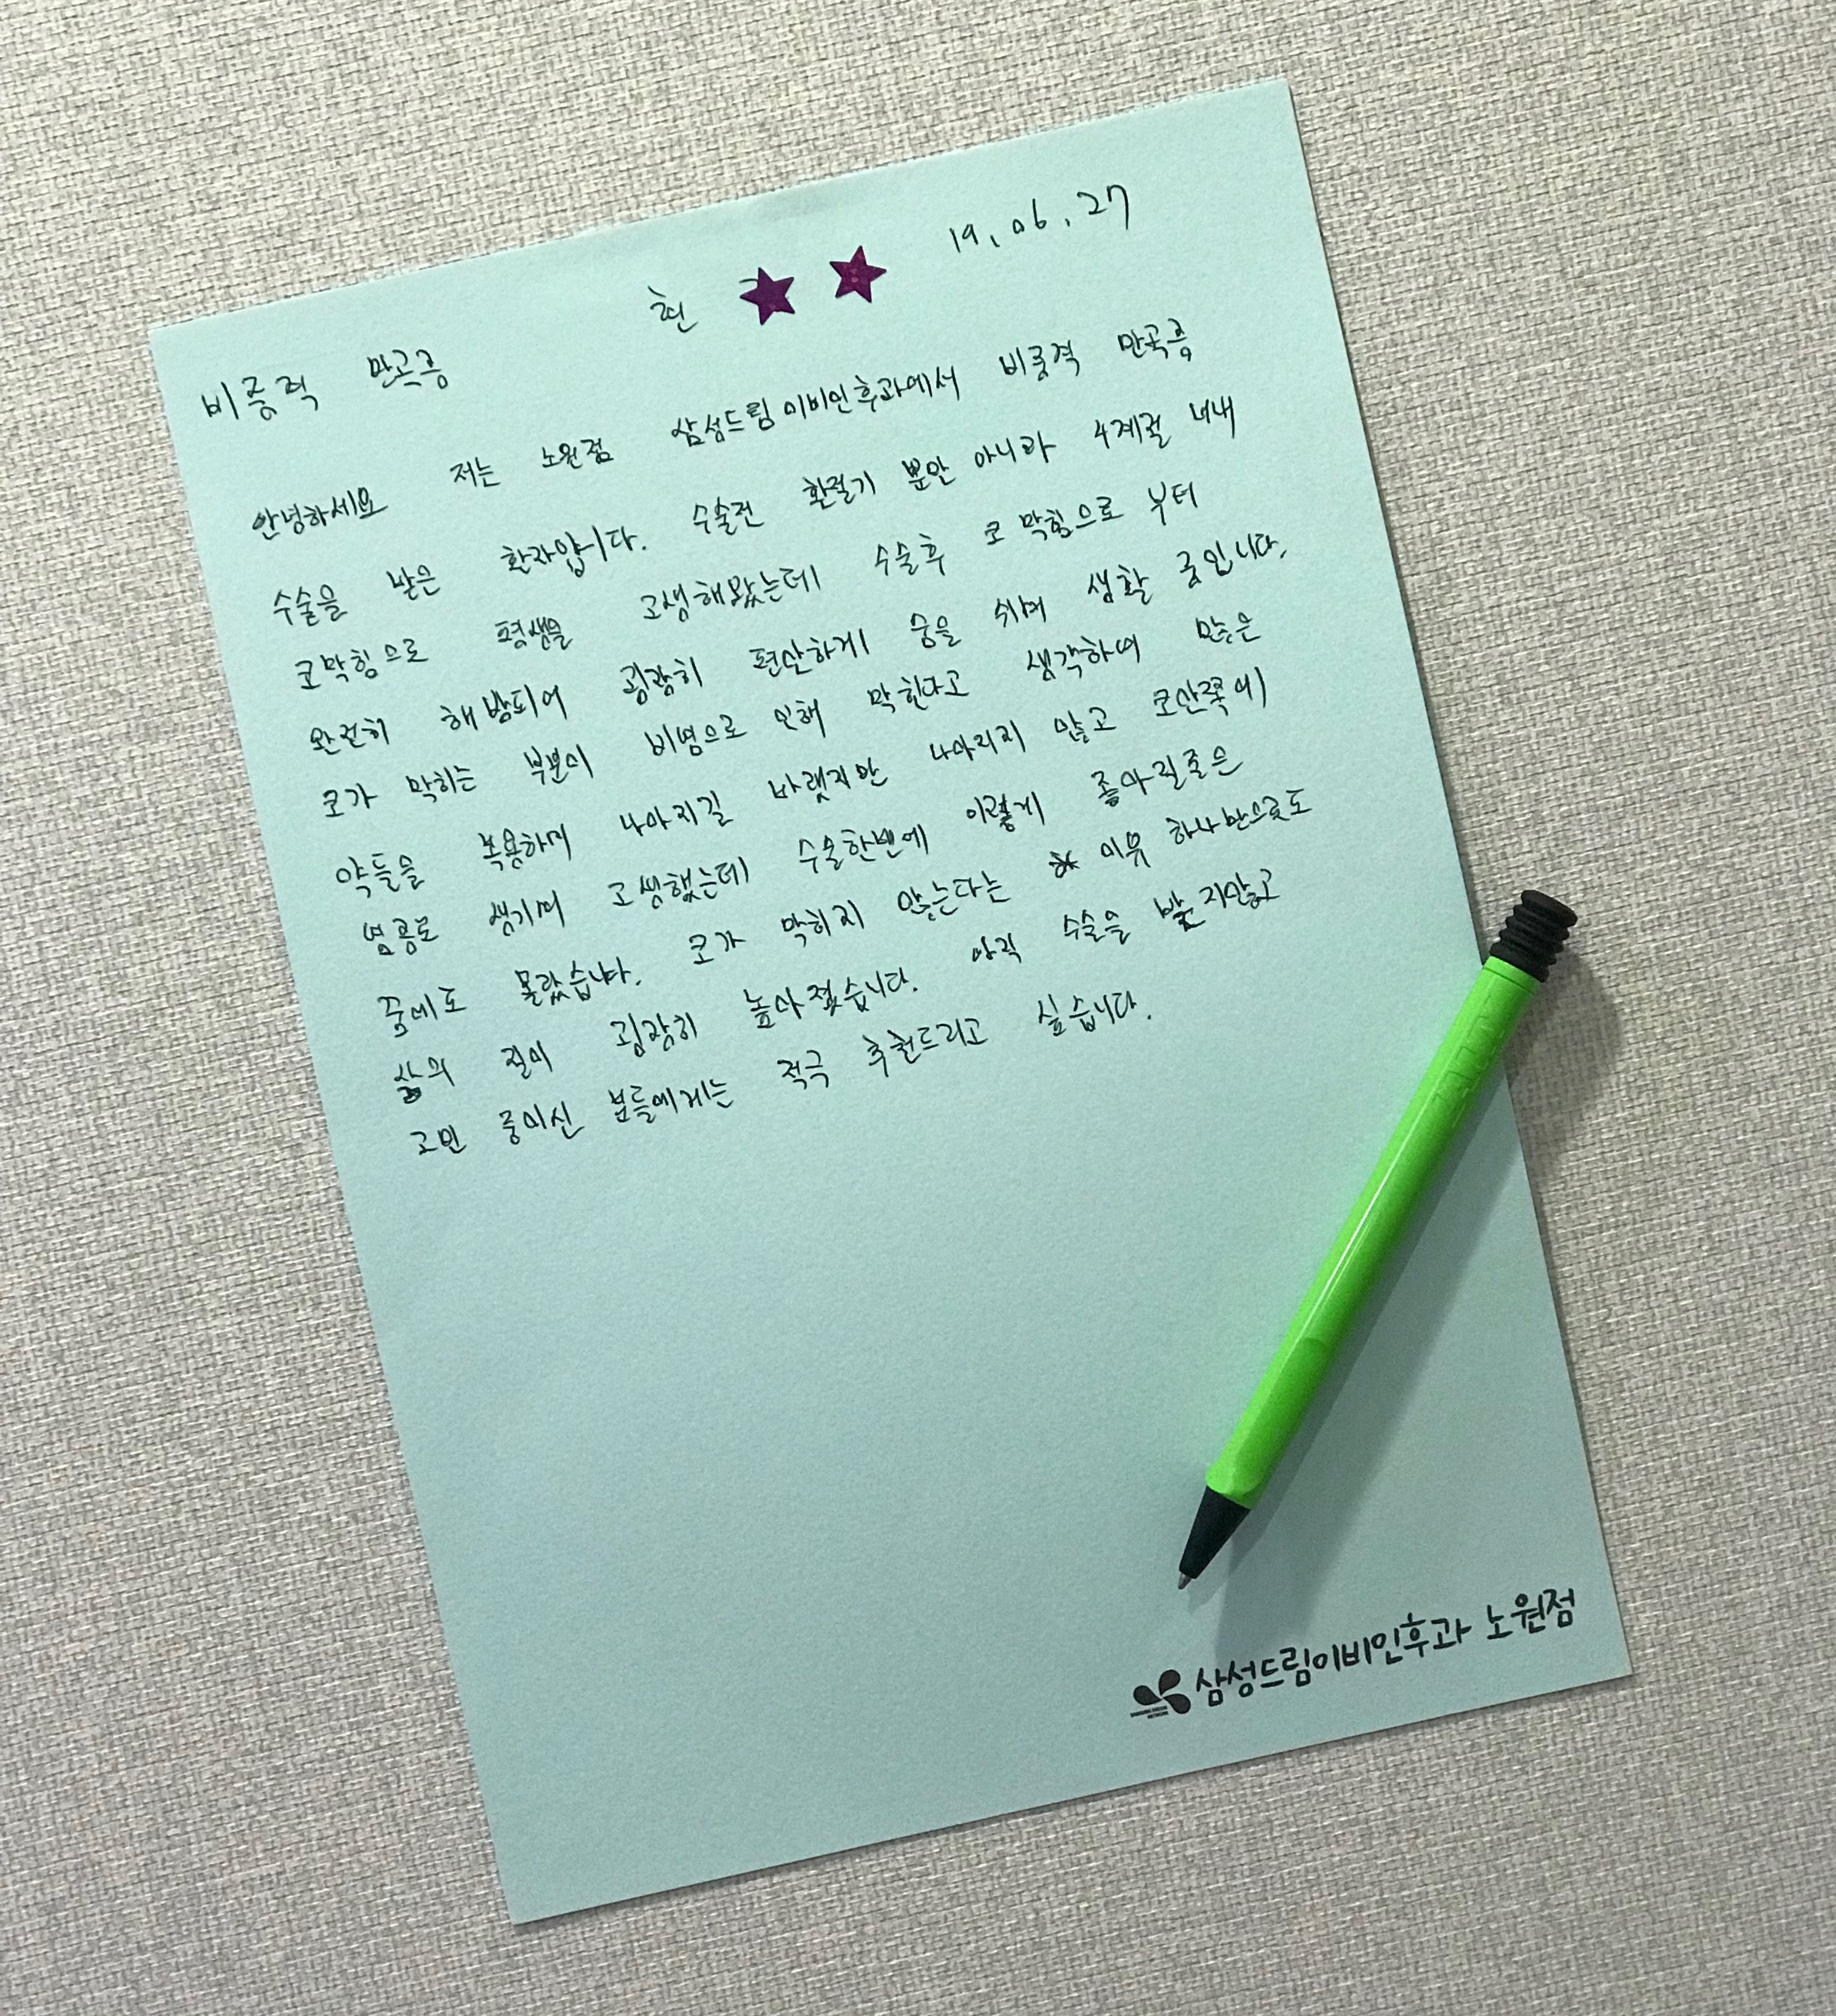 19. 06. 27
현
비중격 만곡증
안녕하세요 저는 노원점 삼성드림이비인후과에서 비중격 만곡증
수술을 받은 환자입니다. 수술전 환절기 뿐만 아니라 4계절 내내
코막힘으로 평생을 고생해왔는데 수술후 코 막힘으로 부터
완전히 해방되어 굉장히 편안하게 숨을 쉬며 생활 중입니다.
코가 막히는 부분이 비염으로 인해 막힌다고 생각하여 많은
약들을 복용하며 나아지길 바랬지만 나아지지 않고 코안쪽에
염증도 생기며 고생했는데 수술한번에 이렇게 좋아질줄은
꿈에도 몰랐습니다. 코가 막히지 않는다는 이유 하나만으로도
삶의 질이 굉장히 높아졌습니다. 아직 수술을 받지않고
고민 중이신 분들에게는 적극 추천드리고 싶습니다.
삼성드림이비인후과 노원점